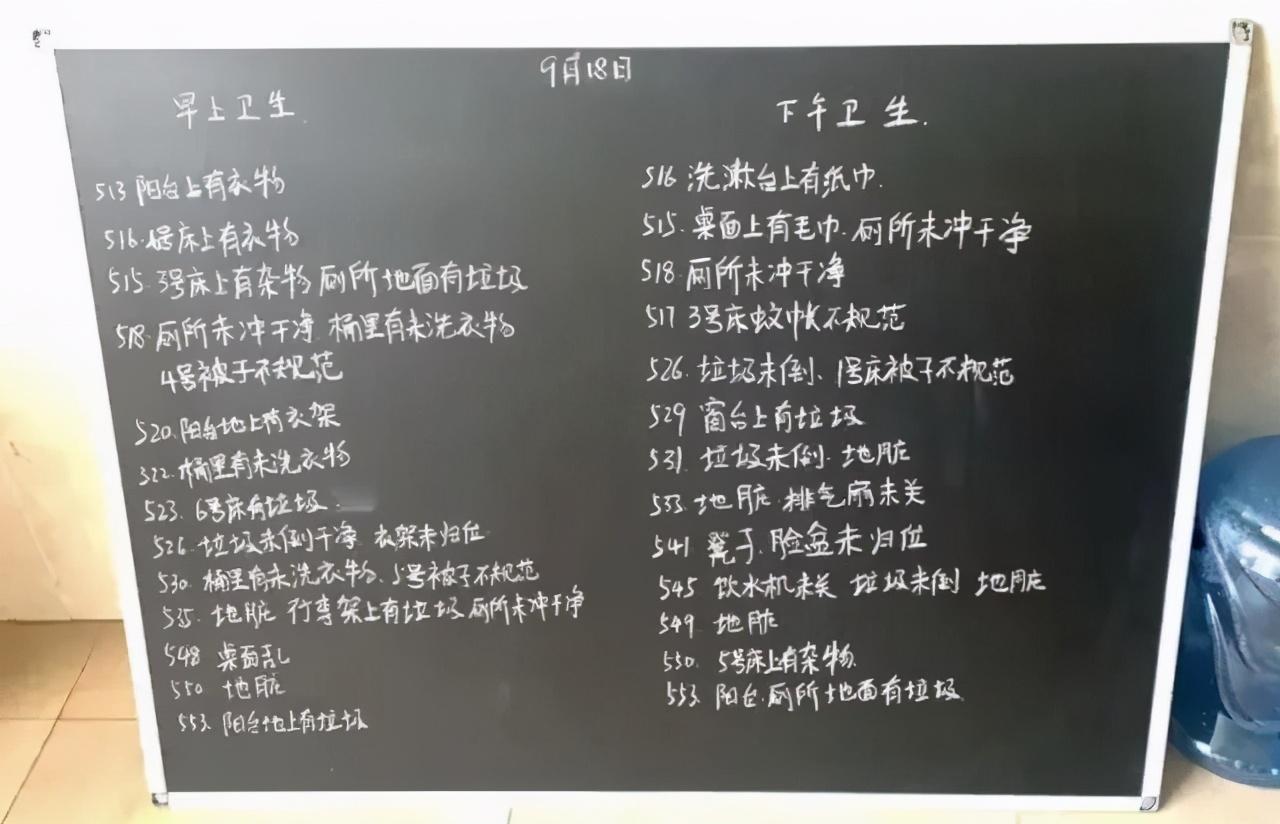 9月18日
早上卫生.
513 阳台上有衣物
516. 号床上有衣物
515. 3号床上有杂物 厕所地面有垃圾
518. 厕所未冲干净 桶里有未洗衣物
4号被子不规范
520. 阳台地上有衣架
522. 桶里有未洗衣物
523. 6号床有垃圾.
526. 垃圾未倒干净 衣架未归位
530. 桶里有未洗衣物、5号被子不规范
535. 地脏 行李架上有垃圾 厕所未冲干净
548 桌面乱
550 地脏
553. 阳台地上有垃圾
下午卫生.
516 洗漱台上有纸巾.
515. 桌面上有毛巾. 厕所未冲干净
518. 厕所未冲干净
517 3号床蚊帐不规范
526. 垃圾未倒、1号床被子不规范
529 窗台上有垃圾
531. 垃圾未倒. 地脏
533. 地脏. 排气扇未关
541 凳子、脸盆未归位
545 饮水机未关 垃圾未倒 地脏
549 地脏
550. 5号床上有杂物.
553. 阳台.厕所地面有垃圾.